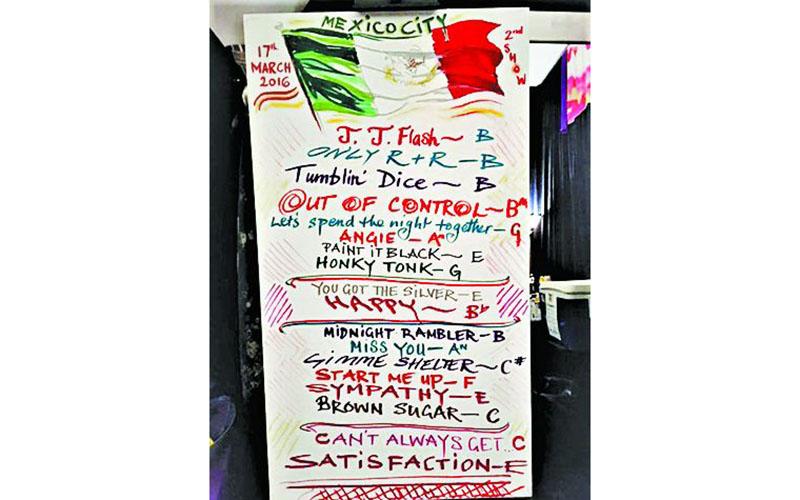 MEXICO CITY
17th
MARCH
2016
2nd SHOW
J. J. Flash ~ B
ONLY R + R - B
Tumblin' Dice ~ B
OUT OF CONTROL ~ Bm
Let's spend the night together - G
ANGIE - Am
PAINT IT BLACK ~ E
HONKY TONK - G
YOU GOT THE SILVER - E
HAPPY ~ Bb
MIDNIGHT RAMBLER - B
MISS YOU - Am
GIMME SHELTER ~ C#
START ME UP - F
SYMPATHY - E
BROWN SUGAR - C
CAN'T ALWAYS GET.. C
SATISFACTION - E